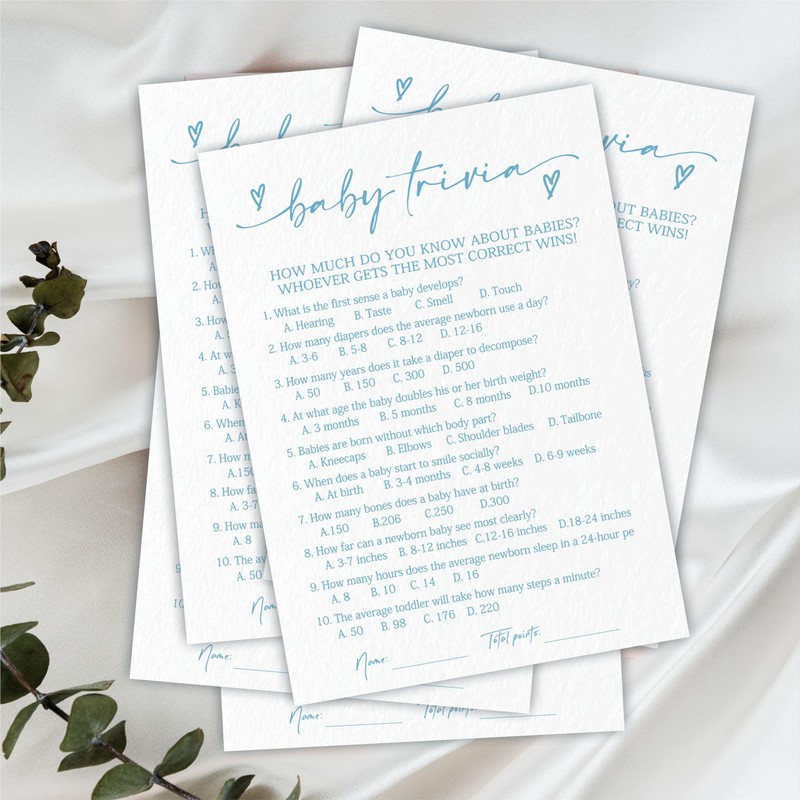 baby trivia
HOW MUCH DO YOU KNOW ABOUT BABIES?
WHOEVER GETS THE MOST CORRECT WINS!
1. What is the first sense a baby develops?
A. Hearing B. Taste C. Smell D. Touch
2. How many diapers does the average newborn use a day?
A. 3-6 B. 5-8 C. 8-12 D. 12-16
3. How many years does it take a diaper to decompose?
A. 50 B. 150 C. 300 D. 500
4. At what age the baby doubles his or her birth weight?
A. 3 months B. 5 months C. 8 months D.10 months
5. Babies are born without which body part?
A. Kneecaps B. Elbows C. Shoulder blades D. Tailbone
6. When does a baby start to smile socially?
A. At birth B. 3-4 months C. 4-8 weeks D. 6-9 weeks
7. How many bones does a baby have at birth?
A.150 B.206 C.250 D.300
8. How far can a newborn baby see most clearly?
A. 3-7 inches B. 8-12 inches C.12-16 inches D.18-24 inches
9. How many hours does the average newborn sleep in a 24-hour pe
A. 8 B. 10 C. 14 D. 16
10. The average toddler will take how many steps a minute?
A. 50 B. 98 C. 176 D. 220
Name: Total points:
BABIES?
WINS!
2. How
3. How
5. Babie
6. When
8. How fa
A. 3-7
9. How ma
A. 8
10. The av
A. 50
Name:
Name: